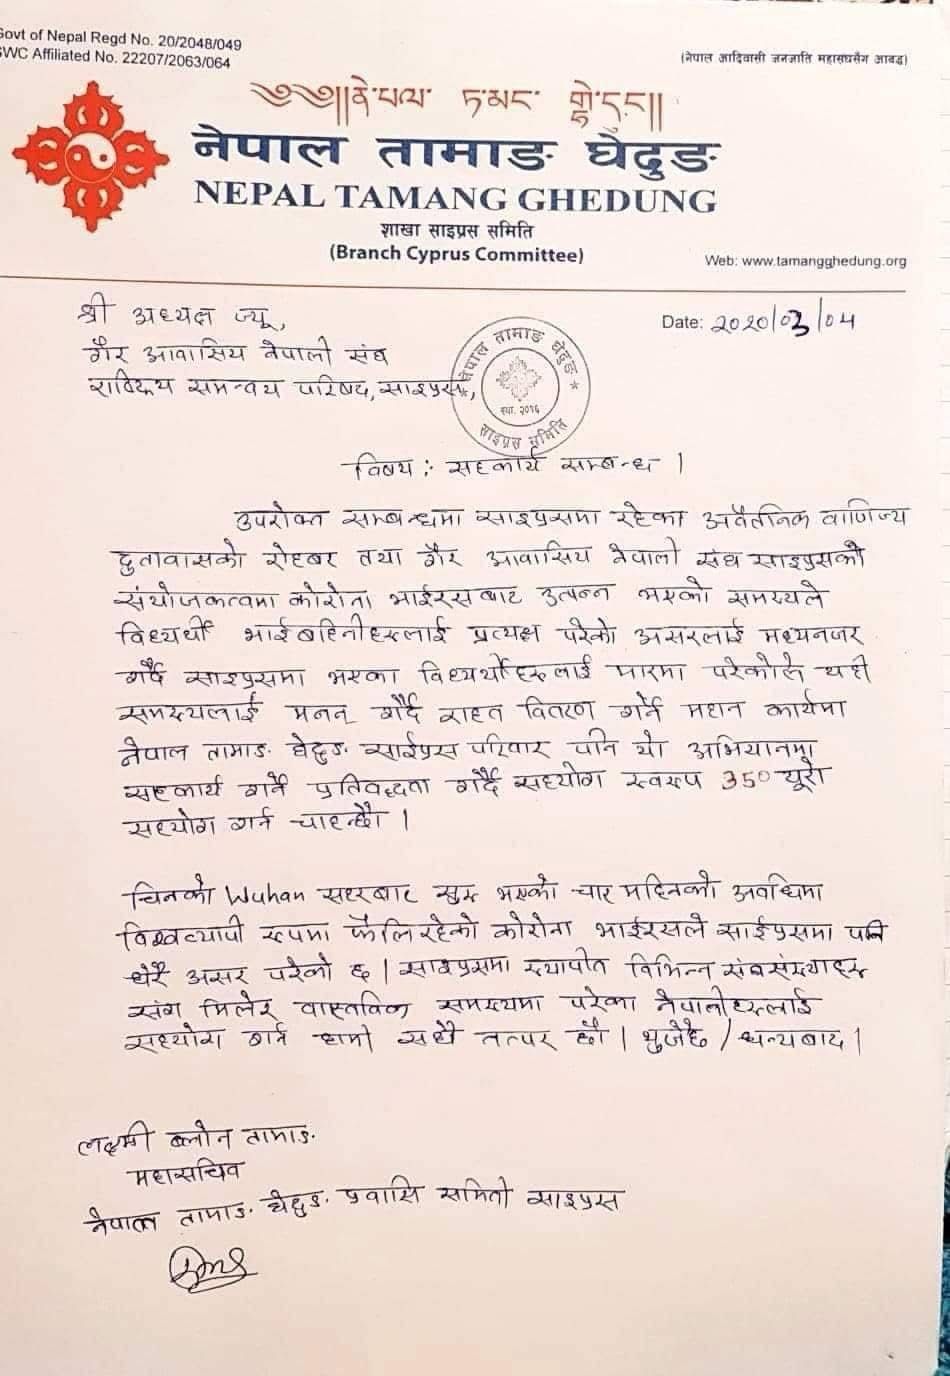 Govt of Nepal Regd No. 20/2048/049
SWC Affiliated No. 22207/2063/064
(नेपाल आदिवासी जनजाति महासंघसँग आवद्ध)
༄༅།།ནེ་པལ་ ཏ་མང་ གྷེ་དུང།།
नेपाल तामाङ घेदुङ
NEPAL TAMANG GHEDUNG
शाखा साइप्रस समिति
(Branch Cyprus Committee)
Web: www.tamangghedung.org
Date: 2020/03/04
श्री अध्यक्ष ज्यू,
गैर आवासिय नेपाली संघ
राष्ट्रिय समन्वय परिषद, साइप्रस,
नेपाल तामाङ घेदुङ
स्था. २०१६
साइप्रस समिति
विषय : सहकार्य सम्बन्ध ।
उपरोक्त सम्बन्धमा साइप्रसमा रहेका अवैतनिक वाणिज्य
दुतावासको रोहबर तथा गैर आवासिय नेपाली संघ साइप्रसको
संयोजकत्वमा कोरोना भाईरसबाट उत्पन्न भएको समस्यले
विध्यर्थी भाईबहिनीहरुलाई प्रत्यक्ष परेको असरलाई मध्यनजर
गर्दै साइप्रसमा भएका विध्यर्थीहरुलाई मारमा परेकोले यही
समस्यलाई मनन् गर्दै राहत वितरण गर्ने महान कार्यमा
नेपाल तामाङ घेदुङ साईप्रस परिवार पनि यो अभियानमा
सहकार्य गर्ने प्रतिवद्धता गर्दै सहयोग स्वरुप 350 यूरो
सहयोग गर्न चाहन्छौ ।
चिनको Wuhan सहरबाट सुरु भएको चार महिनको अवधिमा
विश्वव्यापी रुपमा फैलिरहेको कोरोना भाईरसले साईप्रसमा पनि
धेरै असर परेको छ । साइप्रसमा स्थापीत विभिन्न संघसंस्थाहरु
संग मिलेर वास्तविक समस्यमा परेका नेपालीहरुलाई
सहयोग गर्न हामी सधै तत्पर छौ । भुजेछै / धन्यबाद ।
लक्ष्मी ब्लोन तामाङ
महासचिव
नेपाल तामाङ घेदुङ प्रवासि समिती साइप्रस